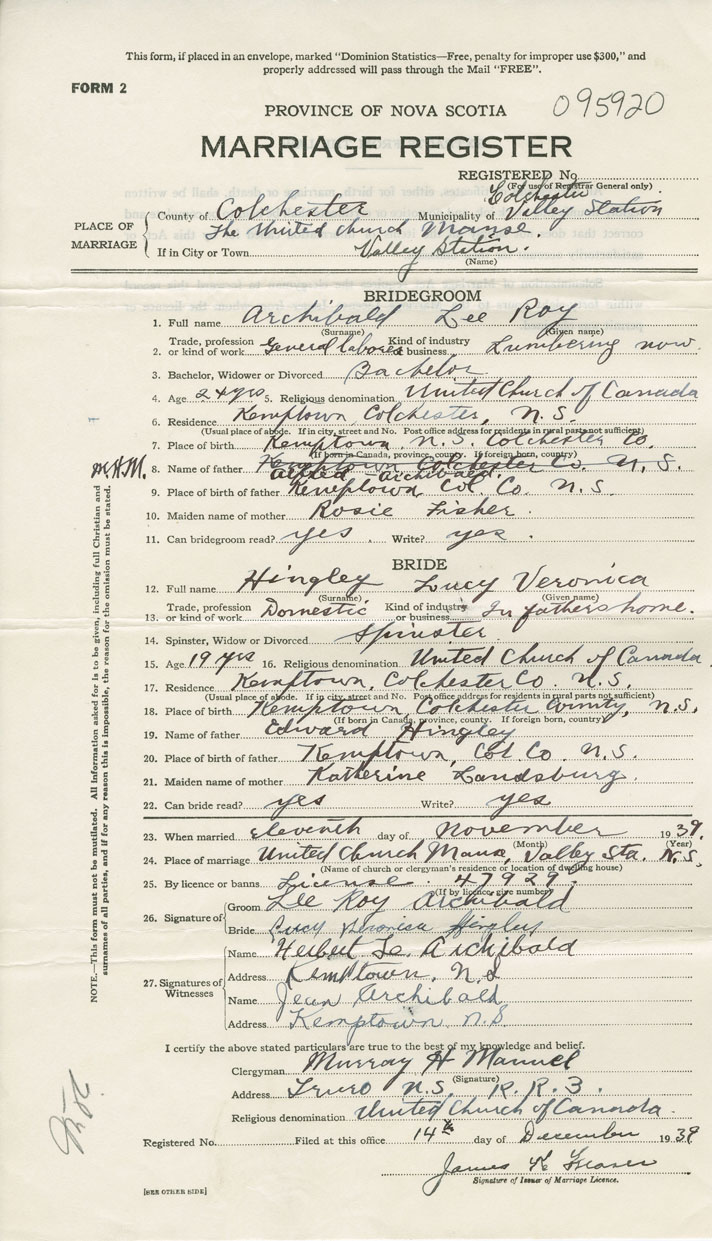 This form, if placed in an envelope, marked "Dominion Statistics—Free, penalty for improper use $300," and
properly addressed will pass through the Mail "FREE".
FORM 2
095920
PROVINCE OF NOVA SCOTIA
MARRIAGE REGISTER
REGISTERED No.
(For use of Registrar General only)
Colchester
PLACE OF MARRIAGE
County of Colchester Municipality of Valley Station
The United Church Manse.
If in City or Town Valley Station.
(Name)
BRIDEGROOM
1. Full name Archibald Lee Roy
(Surname) (Given name)
2. Trade, profession or kind of work General laborer Kind of industry or business Lumbering now
3. Bachelor, Widower or Divorced Bachelor
4. Age 24 yrs 5. Religious denomination United Church of Canada
6. Residence Kemptown, Colchester, N.S.
(Usual place of abode. If in city, street and No. Post office address for residents in rural parts not sufficient)
7. Place of birth Kemptown, N.S. Colchester Co.
(If born in Canada, province, county. If foreign born, country)
M.H.M. 8. Name of father Kemptown Colchester Co. N.S.
Alfred Archibald.
9. Place of birth of father Kemptown Col Co. N.S.
10. Maiden name of mother Rosie Fisher.
11. Can bridegroom read? yes. Write? yes.
BRIDE
12. Full name Hingley Lucy Veronica
(Surname) (Given name)
13. Trade, profession or kind of work Domestic Kind of industry or business In fathers home.
14. Spinster, Widow or Divorced Spinster.
15. Age 19 yrs 16. Religious denomination United Church of Canada.
17. Residence Kemptown, Colchester Co. N.S.
(Usual place of abode. If in city, street and No. Post office address for residents in rural parts not sufficient)
18. Place of birth Kemptown, Colchester County, N.S.
(If born in Canada, province, county. If foreign born, country)
19. Name of father Edward Hingley
20. Place of birth of father Kemptown, Col Co. N.S.
21. Maiden name of mother Katherine Landsburg.
22. Can bride read? yes Write? yes
23. When married eleventh day of November 1939.
(Month) (Year)
24. Place of marriage United Church Manse, Valley Sta. N.S.
(Name of church or clergyman's residence or location of dwelling house)
25. By licence or banns License. 47929.
(If by licence, give number)
26. Signature of
Groom Lee Roy Archibald
Bride Lucy Veronica Hingley
27. Signatures of Witnesses
Name Herbert Archibald
Address Kemptown, N.S
Name Jean Archibald
Address Kemptown N.S.
I certify the above stated particulars are true to the best of my knowledge and belief.
Clergyman Murray H Manuel
(Signature)
Address Truro N.S. R.R.3.
Religious denomination United Church of Canada.
Registered No. Filed at this office 14th day of December 1939
James Fraser
Signature of Issuer of Marriage Licence.
[SEE OTHER SIDE]
NOTE.—This form must not be mutilated. All information asked for is to be given, including full Christian and
surnames of all parties, and if for any reason this is impossible, the reason for the omission must be stated.